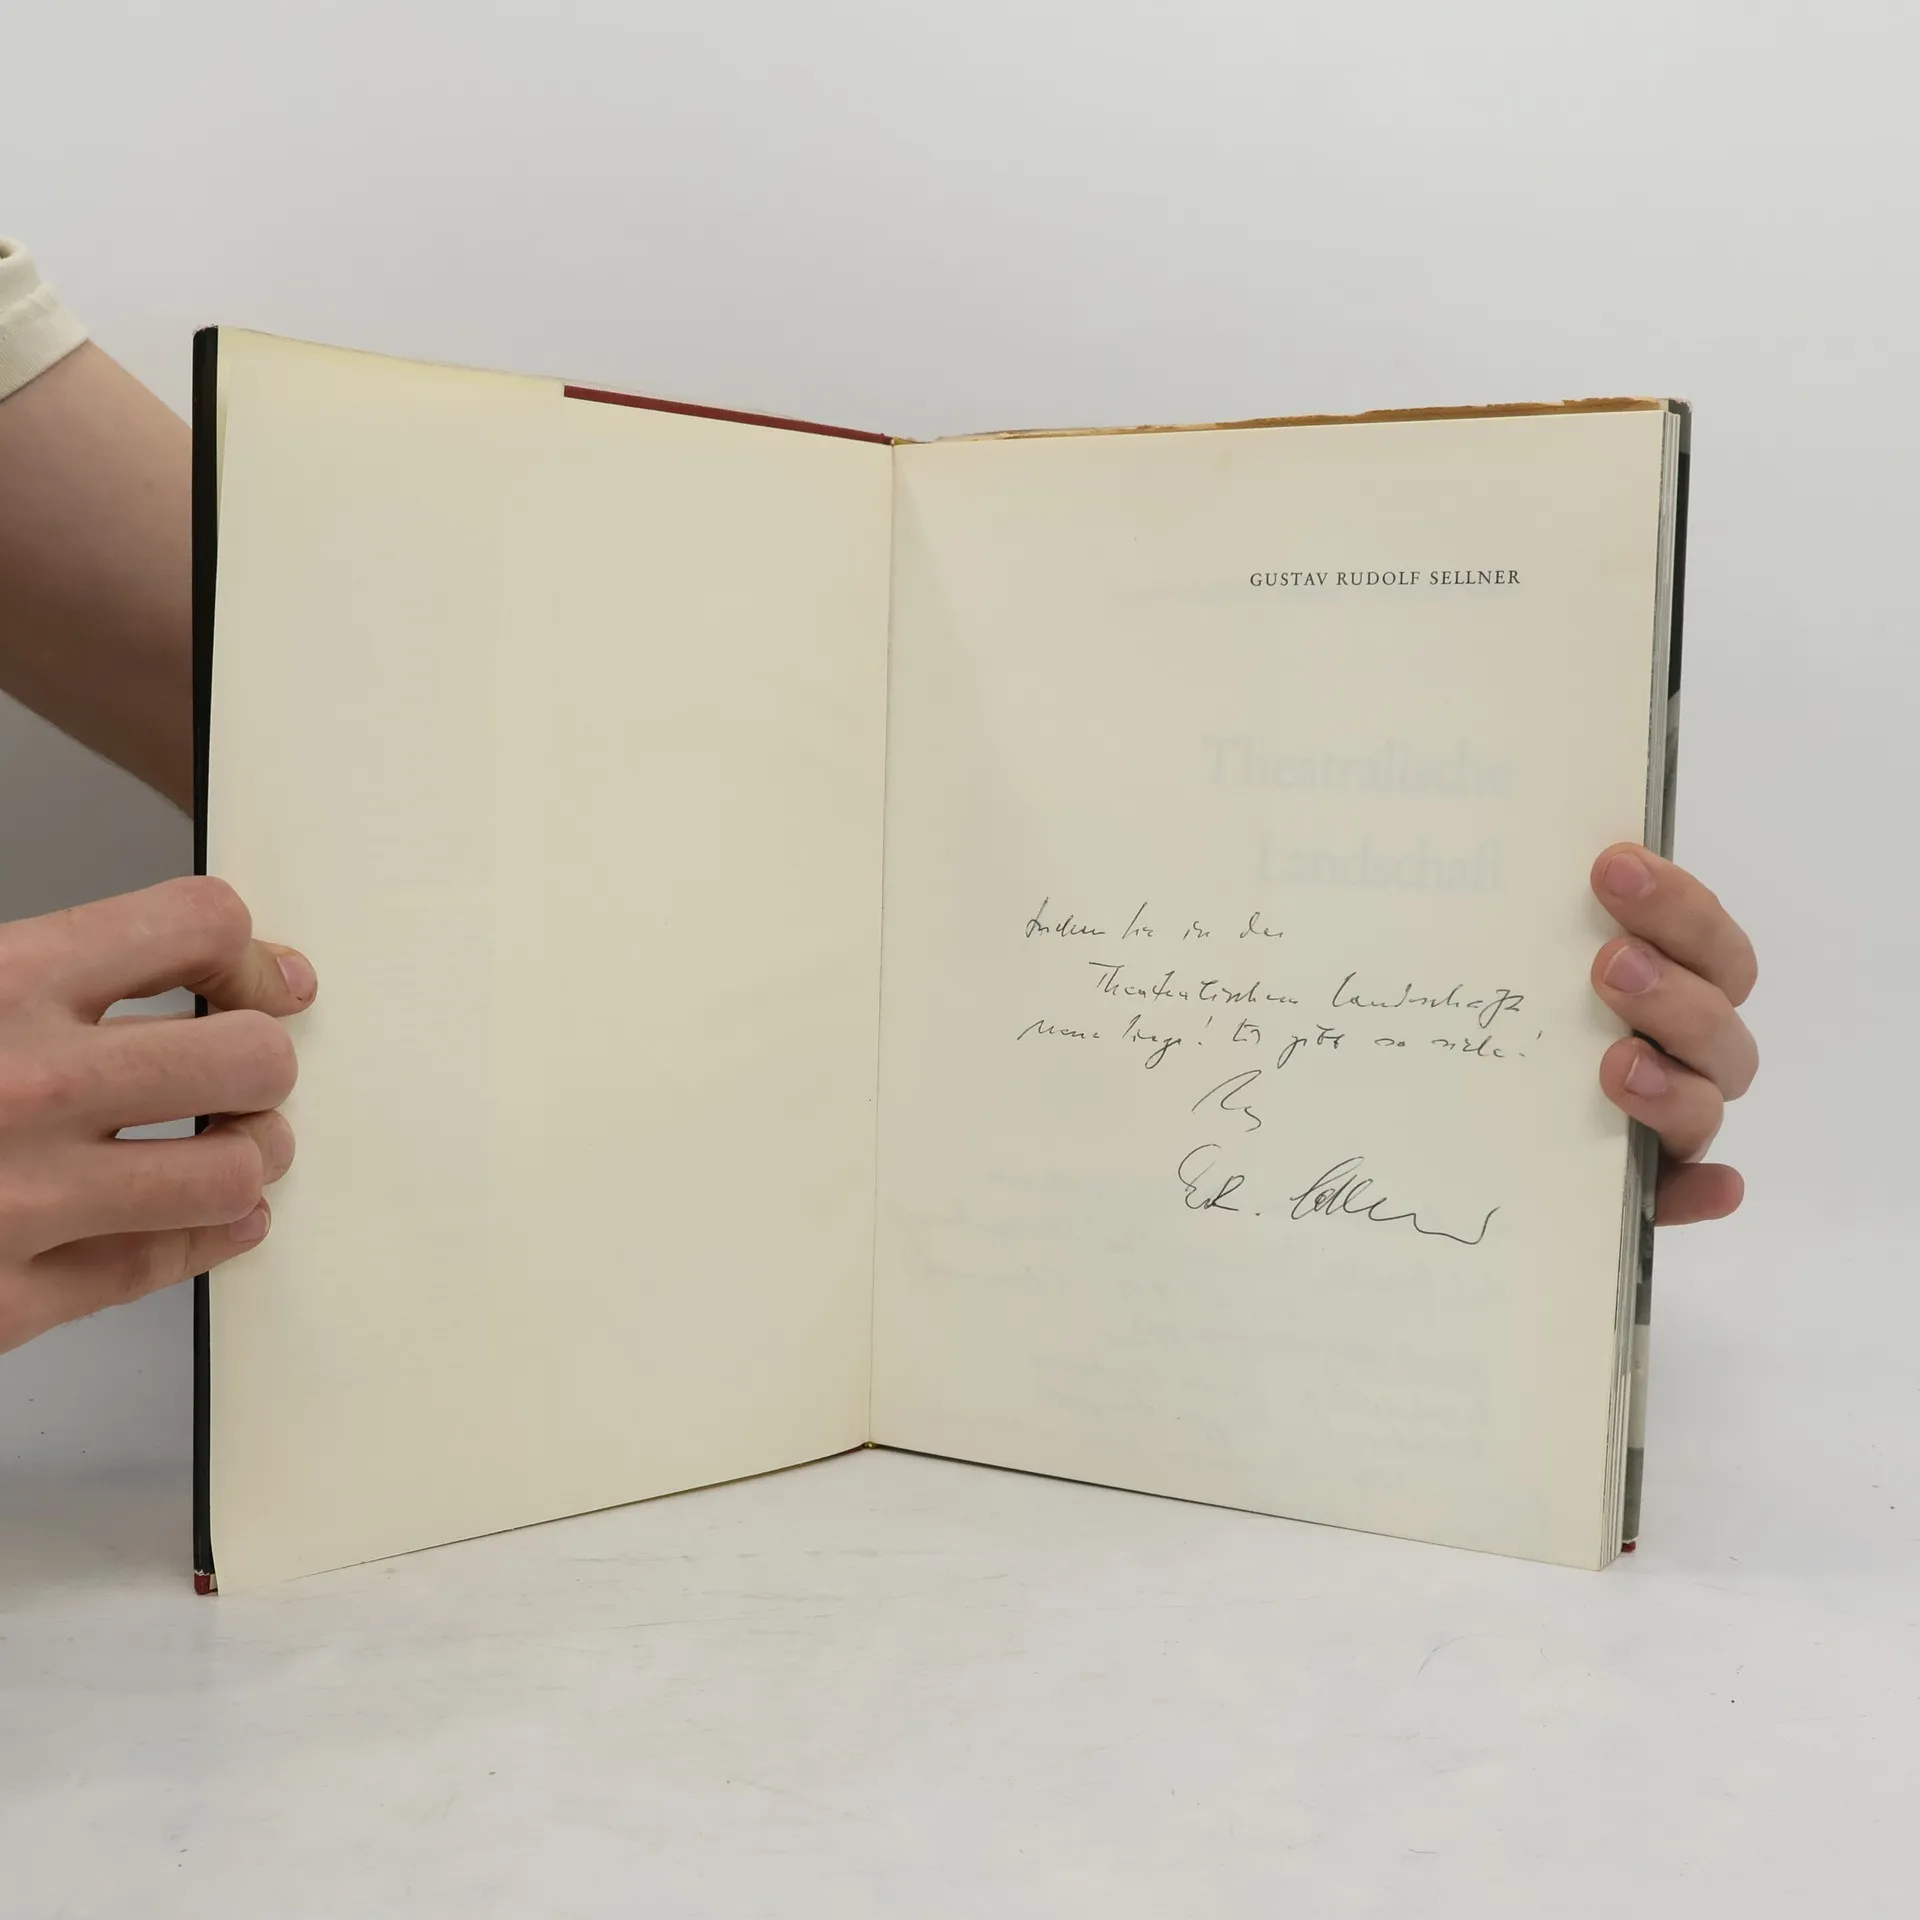 GUSTAV RUDOLF SELLNER
Theatralische
Landschaft
Suchen Sie in der
Theatralischen Landschaft
neue Wege! Es gibt so viele!
G.R. Sellner